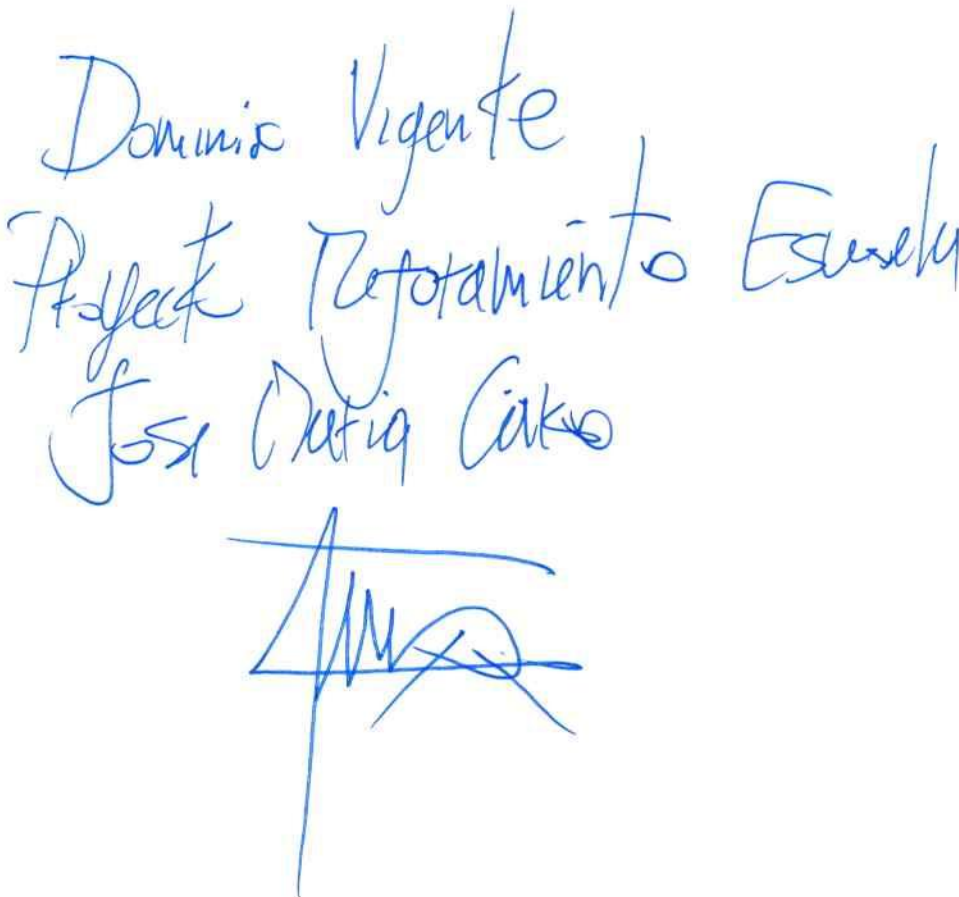 Dominio Vigente
Proyecto Mejoramiento Escuela
Jose Maria Caro